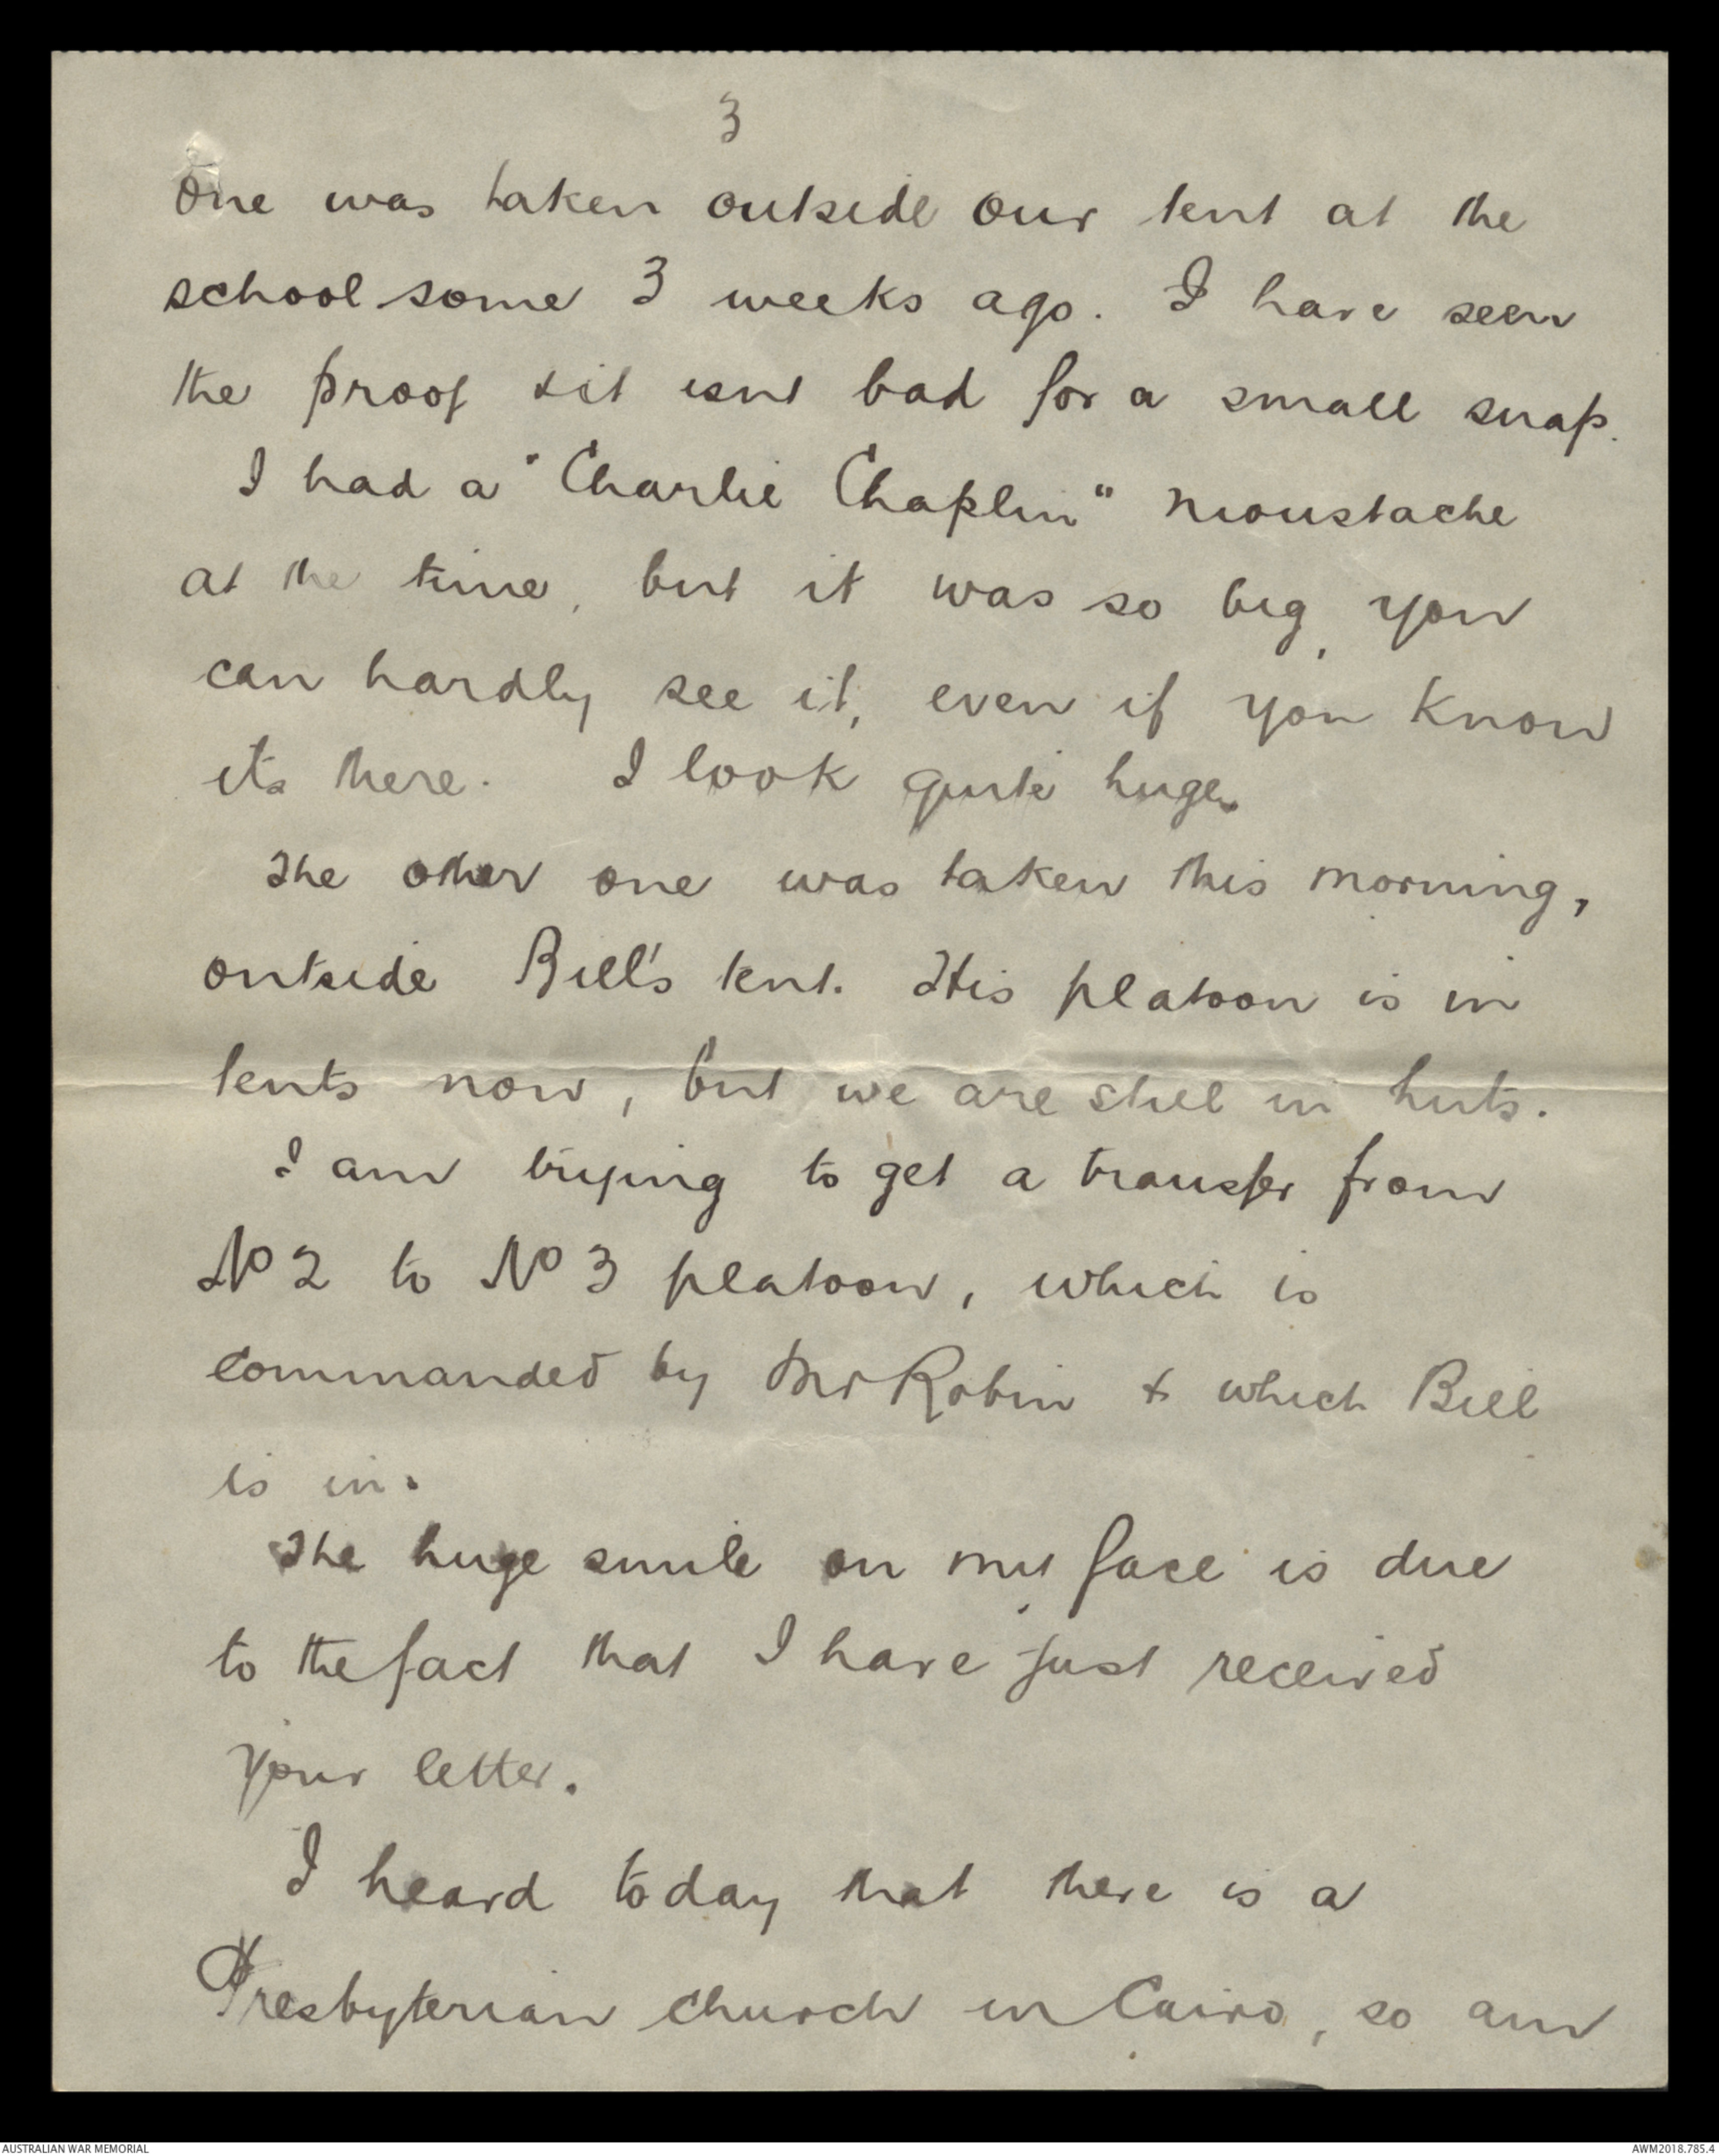 3
One was taken outside our tent at the
school some 3 weeks ago. I have seen
the proof & it isnt bad for a small snap.
I had a "Charlie Chaplin" moustache
at the time, but it was so big, you
can hardly see it, even if you know
its there. I look quite huge.
The other one was taken this morning,
outside Bill's tent. His platoon is in
tents now, but we are still in huts.
I am trying to get a transfer from
No 2 to No 3 platoon, which is
commanded by Mr Robin & which Bill
is in.
The huge smile on my face is due
to the fact that I have just received
your letter.
I heard today that there is a
Presbyterian church in Cairo, so am
AUSTRALIAN WAR MEMORIAL
AWM2018.785.4